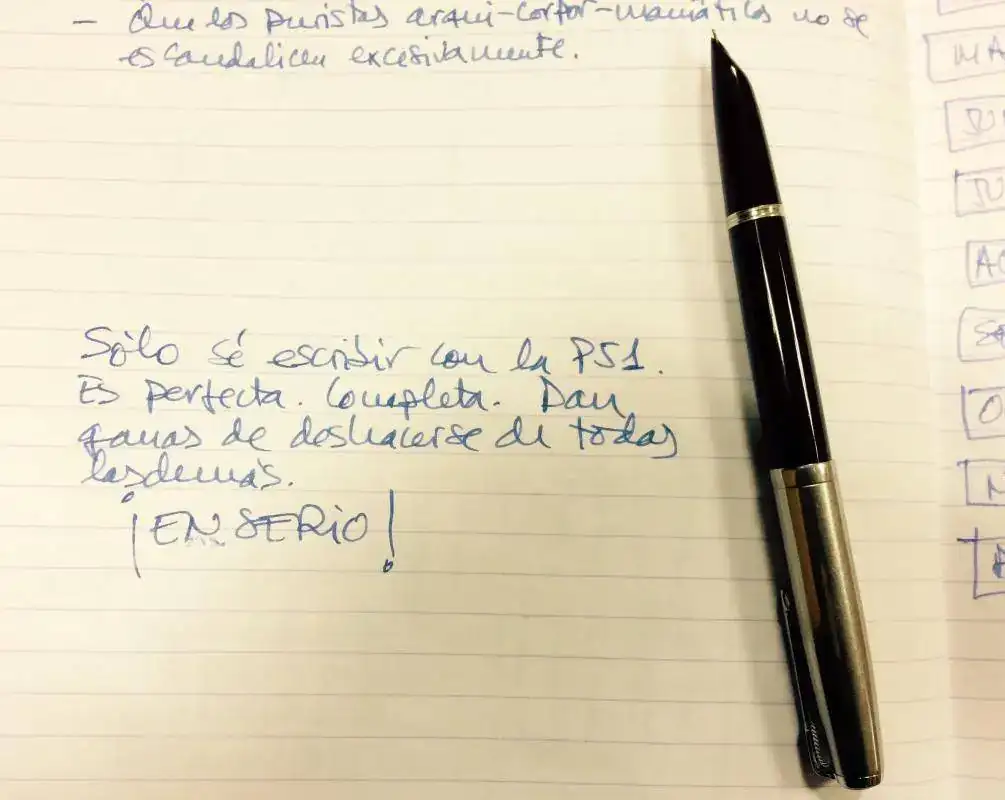 - Que los puristas arqui-corpor-mamáticos no se
escandalicen excesivamente.
Sólo sé escribir con la P51.
Es perfecta. Completa. Dan
ganas de deshacerse de todas
las demás.
¡EN SERIO!
MA
JU